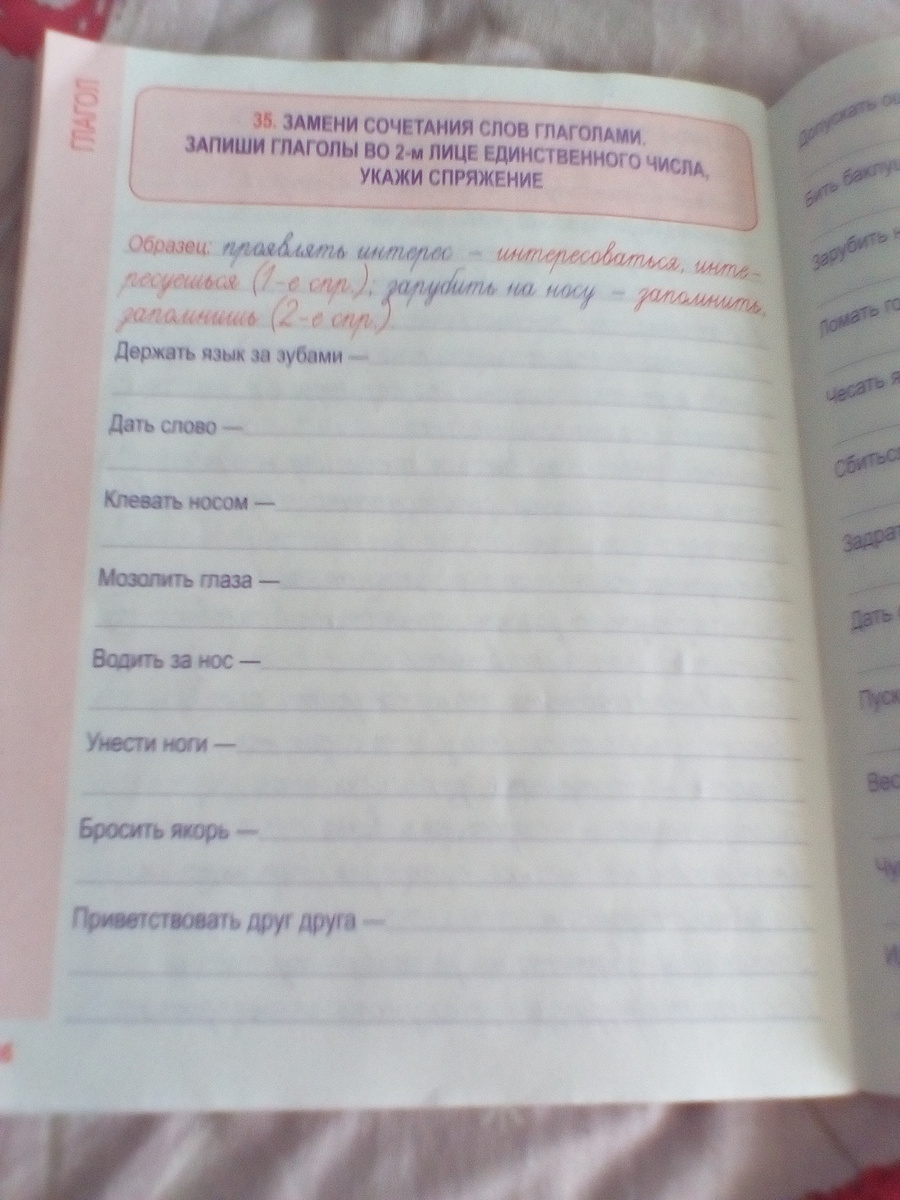 ГЛАГОЛ
35. ЗАМЕНИ СОЧЕТАНИЯ СЛОВ ГЛАГОЛАМИ.
ЗАПИШИ ГЛАГОЛЫ ВО 2-м ЛИЦЕ ЕДИНСТВЕННОГО ЧИСЛА,
УКАЖИ СПРЯЖЕНИЕ
Образец: проявлять интерес – интересоваться, инте-
ресуешься (1-е спр.); зарубить на носу – запомнить,
запомнишь (2-е спр.).
Держать язык за зубами —
Дать слово —
Клевать носом —
Мозолить глаза —
Водить за нос —
Унести ноги —
Бросить якорь —
Приветствовать друг друга —
Допускать
Бить
Зарубить
Ломать
Чесать
Дать